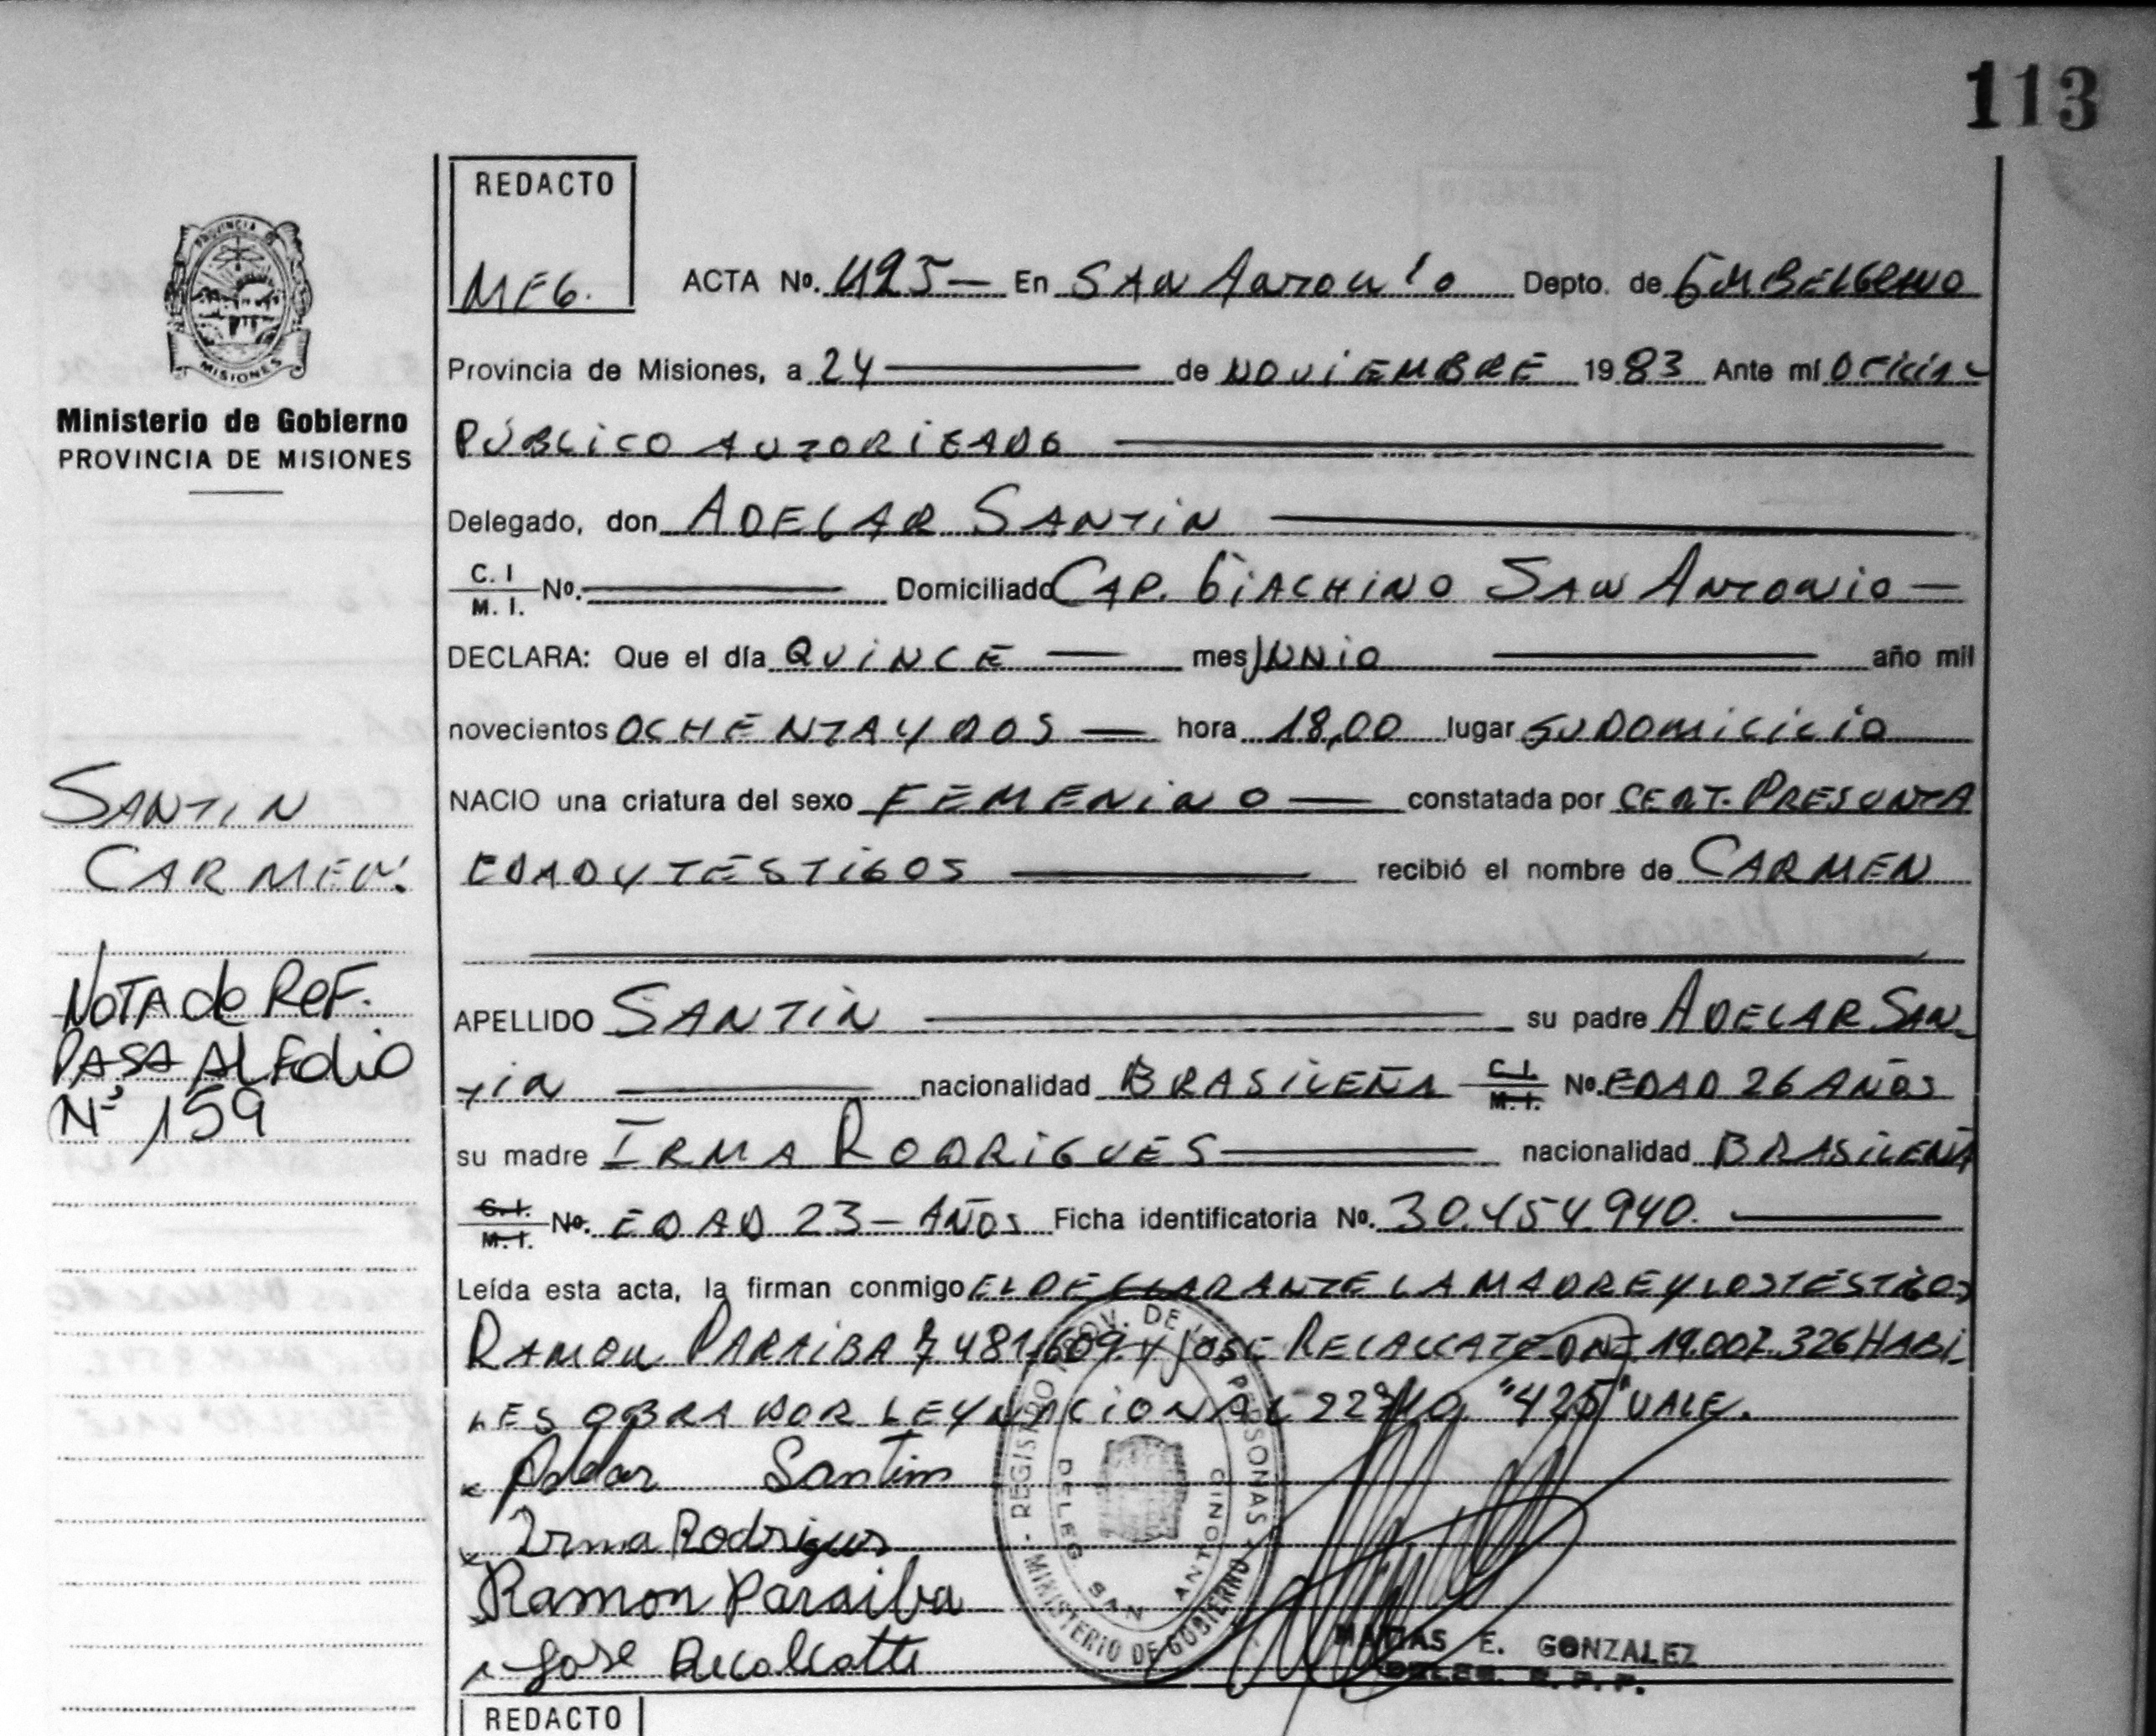 113
REDACTO
MEG.
ACTA No. 425— En SAN ANTONIO Depto. de GM BELGRANO
Provincia de Misiones, a 24 de NOVIEMBRE 1983 Ante mí OFICIAL
PÚBLICO AUTORIZADO
Delegado, don ADELAR SANTIN
C. I / M. I. No. Domiciliado CAP. GIACHINO SAN ANTONIO —
DECLARA: Que el día QUINCE — mes JUNIO año mil
novecientos OCHENTA Y DOS — hora 18,00 lugar SU DOMICILIO
NACIO una criatura del sexo FEMENINO — constatada por CERT. PRESUNTA
EDAD Y TESTIGOS recibió el nombre de CARMEN
APELLIDO SANTIN su padre ADELAR SAN-
TIN nacionalidad BRASILEÑA C.I. / M.I. No. EDAD 26 AÑOS
su madre IRMA RODRIGUES nacionalidad BRASILEÑA
C.I. / M.I. No. EDAD 23 — AÑOS Ficha identificatoria No. 30.454.940.
Leída esta acta, la firman conmigo EL DECLARANTE LA MADRE Y LOS TESTIGOS
RAMON PARAIBA 7.481.609. Y JOSE RECALCATE DNI. 19.007.326 HABI-
LES OBRA POR LEY NACIONAL "425" VALE.
Adelar Santin
Irma Rodrigues
Ramon Paraiba
Jose Recalcatte
REGISTRO PROV. DE LAS PERSONAS
MINISTERIO DE GOBIERNO
DELEG. SAN ANTONIO
MATIAS E. GONZALEZ
DELEG. R. P. P.
REDACTO
PROVINCIA DE
MISIONES
Ministerio de Gobierno
PROVINCIA DE MISIONES
SANTIN
CARMEN.
NOTA de ReF.
PASA Al Folio
Nº 159